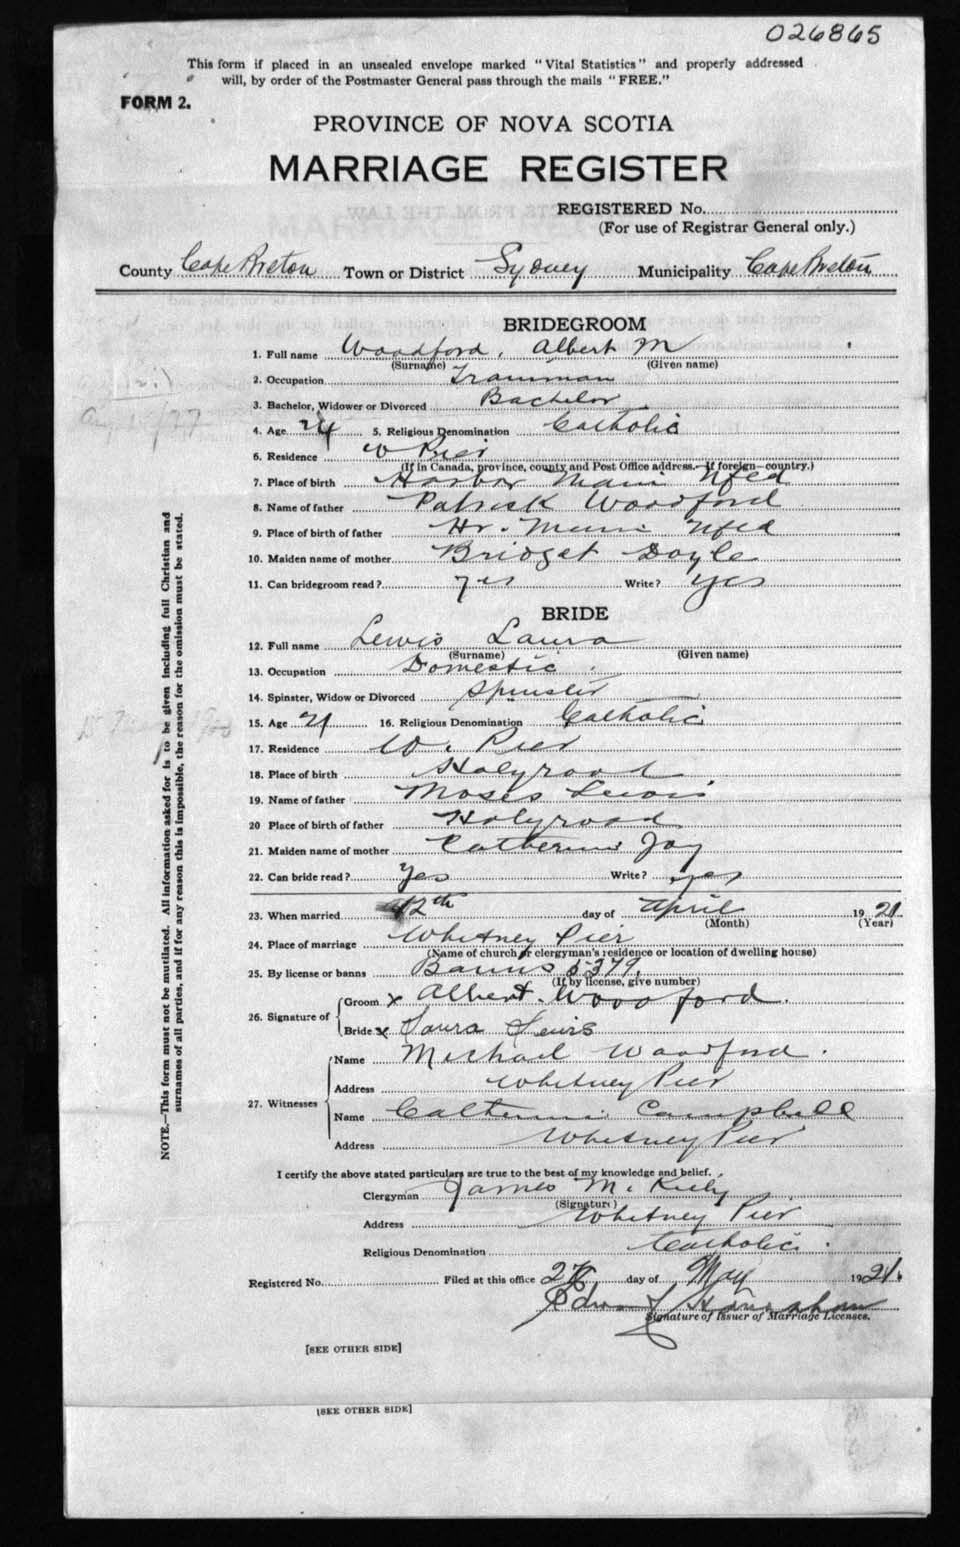 026865
This form if placed in an unsealed envelope marked "Vital Statistics" and properly addressed
will, by order of the Postmaster General pass through the mails "FREE."
FORM 2.
PROVINCE OF NOVA SCOTIA
MARRIAGE REGISTER
REGISTERED No.
(For use of Registrar General only.)
County Cape Breton Town or District Sydney Municipality Cape Breton
BRIDEGROOM
1. Full name Woodford, Albert M
(Surname) (Given name)
2. Occupation Tramman
3. Bachelor, Widower or Divorced Bachelor
4. Age 24 5. Religious Denomination Catholic
6. Residence W Pier
(If in Canada, province, county and Post Office address.—if foreign—country.)
7. Place of birth Harbor Main Nfld
8. Name of father Patrick Woodford
9. Place of birth of father Hr. Main Nfld
10. Maiden name of mother Bridget Doyle
11. Can bridegroom read? yes Write? yes
BRIDE
12. Full name Lewis Laura
(Surname) (Given name)
13. Occupation Domestic
14. Spinster, Widow or Divorced Spinster
15. Age 21 16. Religious Denomination Catholic
17. Residence W. Pier
18. Place of birth Holyrood
19. Name of father Moses Lewis
20 Place of birth of father Holyrood
21. Maiden name of mother Catherine Joy
22. Can bride read? Yes Write? yes
23. When married 12th day of April 1921
(Month) (Year)
24. Place of marriage Whitney Pier
(Name of church or clergyman's residence or location of dwelling house)
25. By license or banns Banns 5379.
(If by license, give number)
26. Signature of
Groom x Albert Woodford.
Bride x Laura Lewis
27. Witnesses
Name Michael Woodford.
Address Whitney Pier
Name Catherine Campbell
Address Whitney Pier
I certify the above stated particulars are true to the best of my knowledge and belief.
Clergyman James M. Kiely
(Signature)
Address Whitney Pier
Religious Denomination Catholic.
Registered No. Filed at this office day of May 1921.
Signature of Issuer of Marriage Licenses.
[SEE OTHER SIDE]
[SEE OTHER SIDE]
NOTE.—This form must not be mutilated. All information asked for is to be given including full Christian and
surnames of all parties, and if for any reason this is impossible, the reason for the omission must be stated.